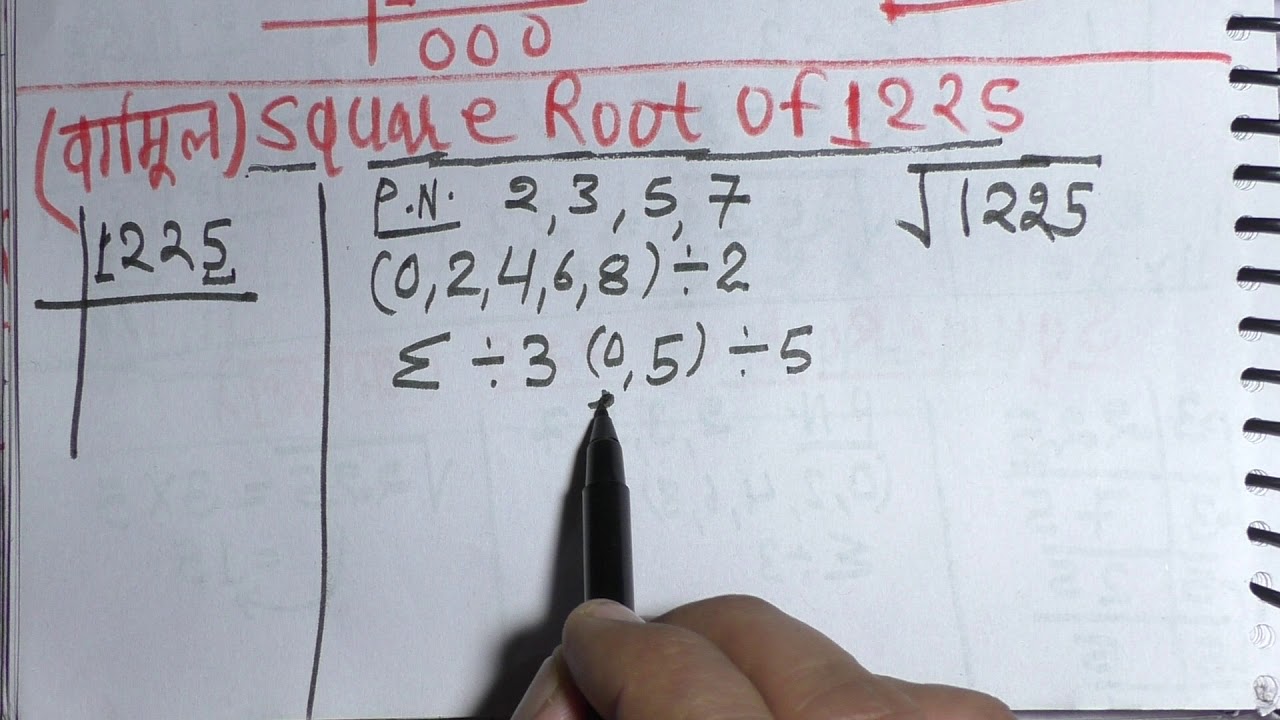 000
(वर्गमूल) Square Root Of 1225
1225
P.N. 2, 3, 5, 7
(0, 2, 4, 6, 8) ÷ 2
Σ ÷ 3 (0, 5) ÷ 5
√1225